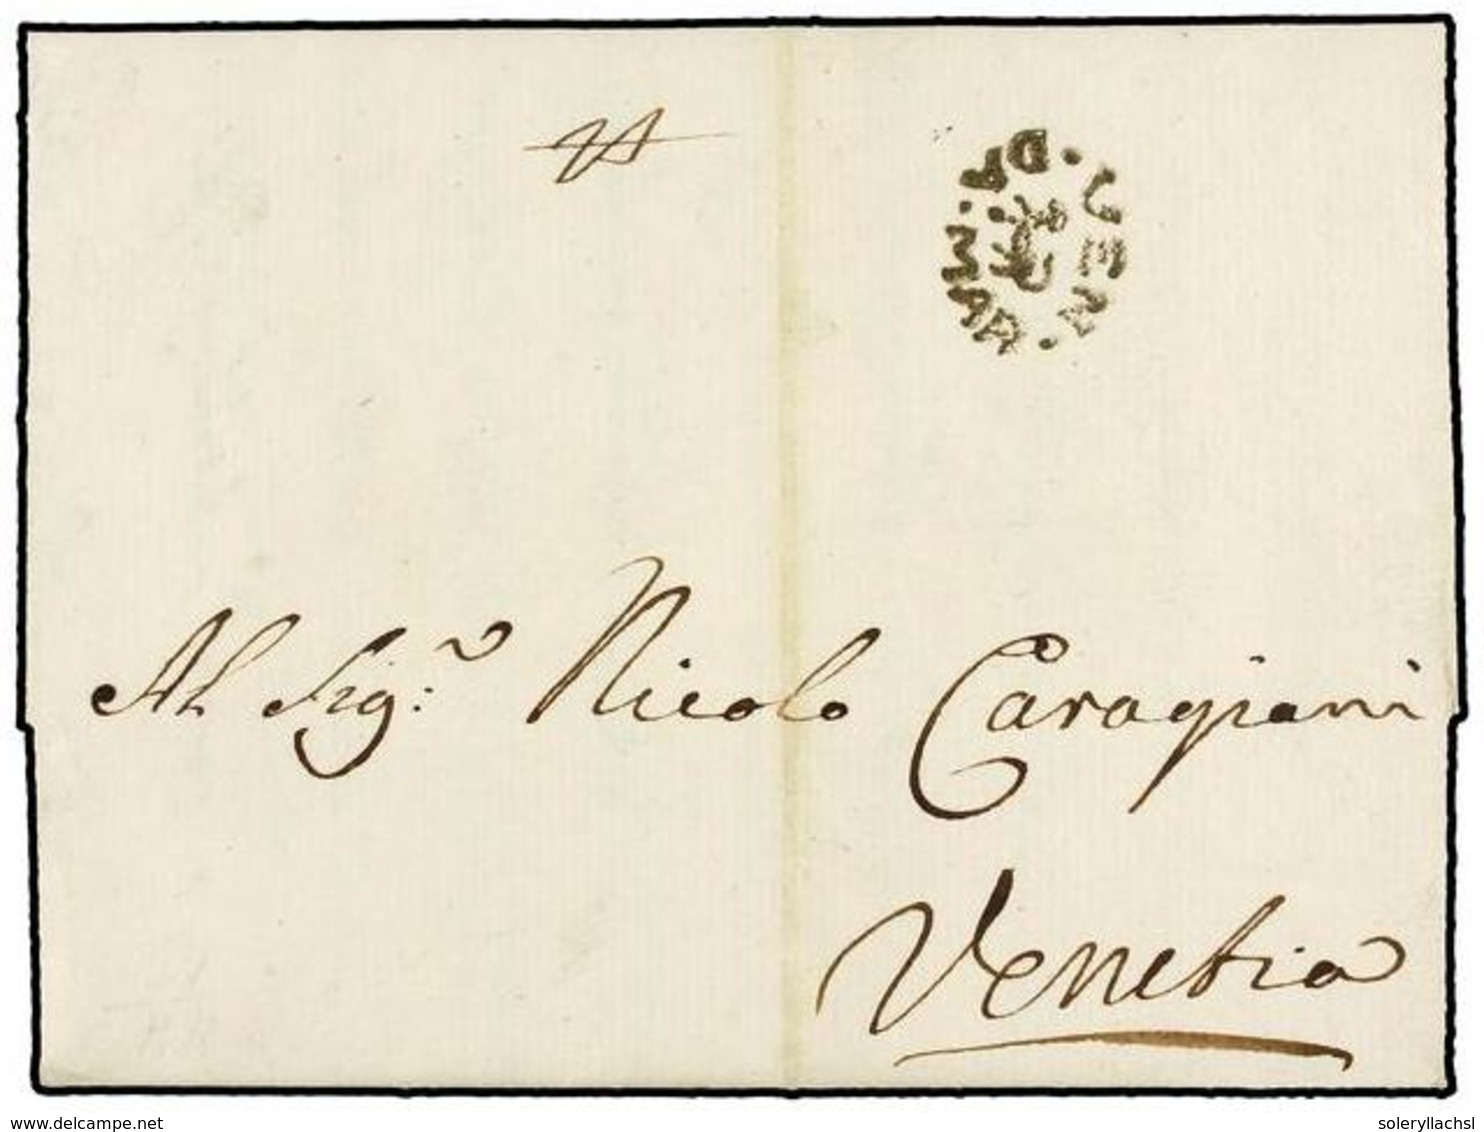 VEN. DA. MAR.
Al Sig:r Nicolo Caragiani
Venetia
delcampe.net
soleryllachsl